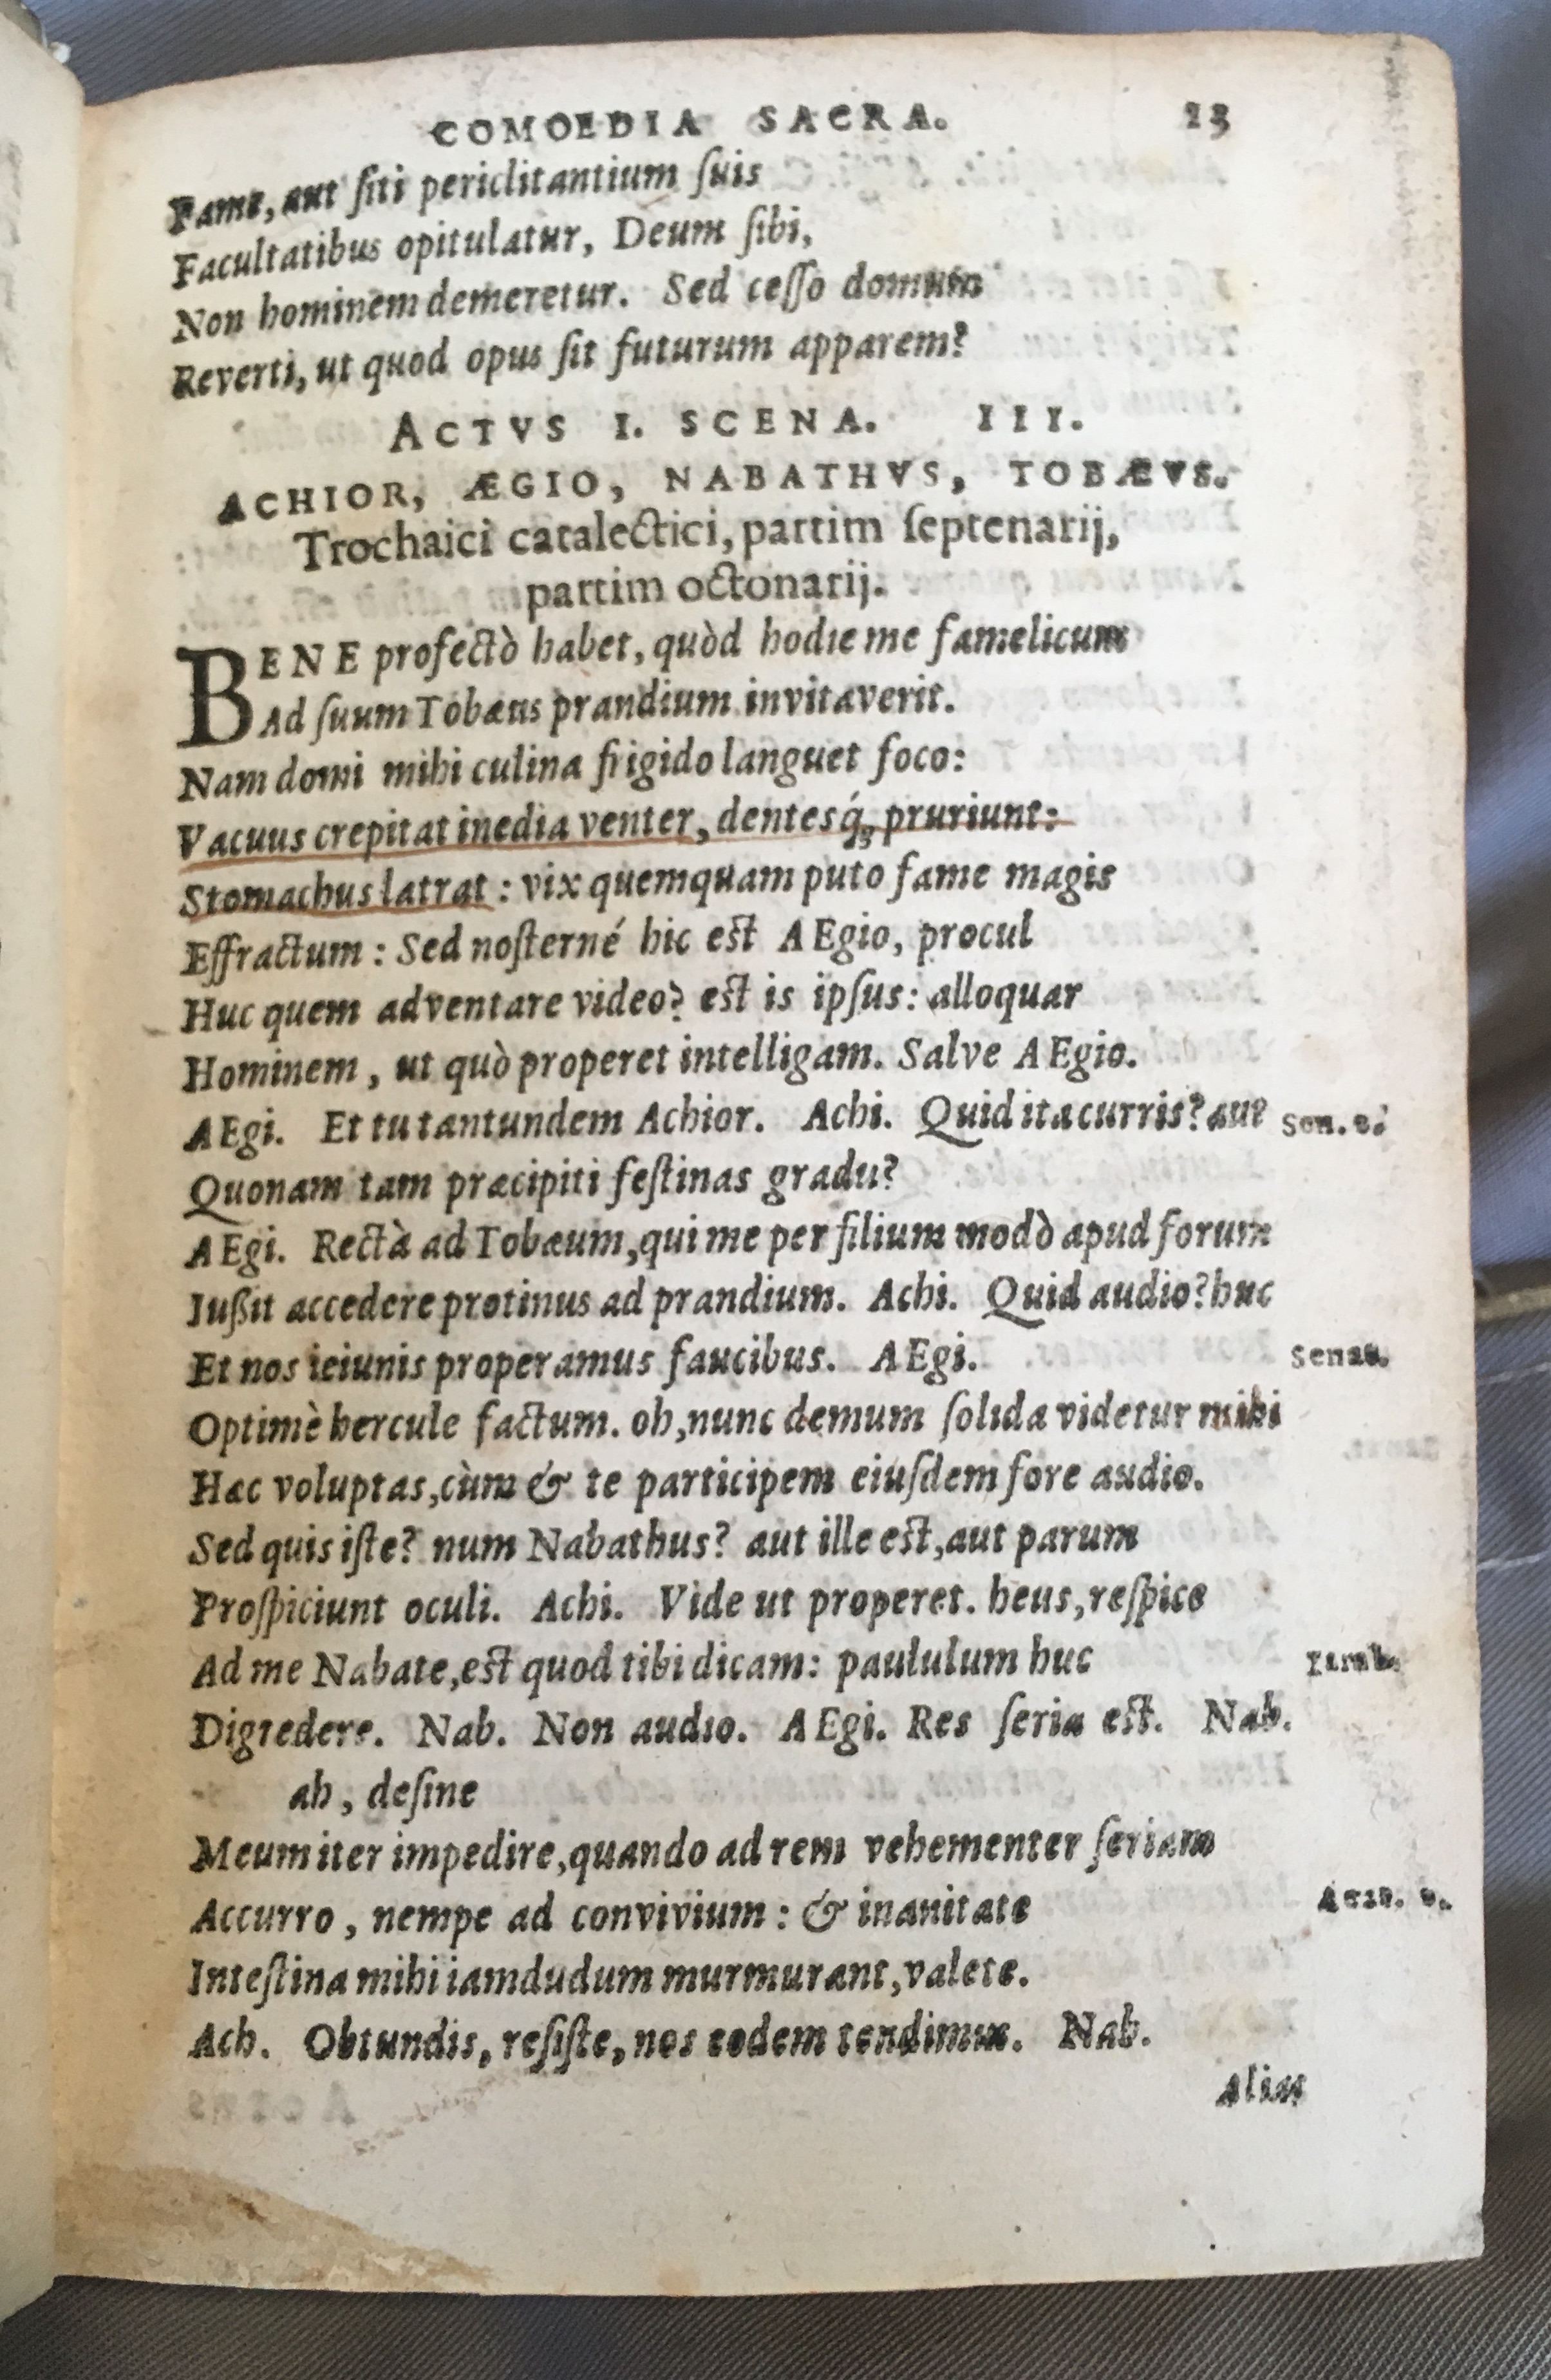 COMOEDIA SACRA. 23
Fame, aut ſiti periclitantium ſuis
Facultatibus opitulatur, Deum ſibi,
Non hominem demeretur. Sed ceſſo domum
Reverti, ut quod opus ſit futurum apparem?
ACTVS I. SCENA. III.
ACHIOR, ÆGIO, NABATHVS, TOBÆVS.
Trochaici catalectici, partim ſeptenarij,
partim octonarij.
BENE profectò habet, quòd hodie me famelicum
Ad ſuum Tobæus prandium invitaverit.
Nam domi mihi culina frigido languet foco:
Vacuus crepitat inedia venter, dentesq́; pruriunt:
Stomachus latrat: vix quemquam puto fame magis
Effractum: Sed noſterné hic eſt AEgio, procul
Huc quem adventare video? eſt is ipſus: alloquar
Hominem, ut quò properet intelligam. Salve AEgio.
AEgi. Et tu tantundem Achior. Achi. Quid ita curris? aut Sen.
Quonam tam præcipiti feſtinas gradu?
AEgi. Rectà ad Tobæum, qui me per filium modò apud forum
Iußit accedere protinus ad prandium. Achi. Quid audio? huc
Et nos ieiunis properamus faucibus. AEgi. Senar.
Optimè hercule factum. oh, nunc demum ſolida videtur mihi
Hæc voluptas, cùm & te participem eiuſdem fore audio.
Sed quis iſte? num Nabathus? aut ille eſt, aut parum
Proſpiciunt oculi. Achi. Vide ut properet. heus, reſpice
Ad me Nabate, eſt quod tibi dicam: paululum huc Iamb.
Digredere. Nab. Non audio. AEgi. Res ſeria eſt. Nab.
ah, deſine
Meum iter impedire, quando ad rem vehementer ſeriam
Accurro, nempe ad convivium: & inanitate
Inteſtina mihi iamdudum murmurant, valete.
Ach. Obtundis, reſiſte, nos eodem tendimus. Nab.
Alias